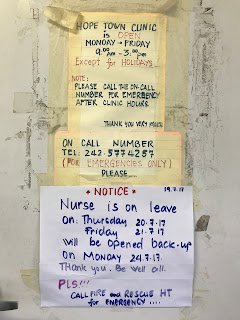 HOPE TOWN CLINIC
is OPEN
MONDAY → FRIDAY
9:00 AM - 3:00 PM
Except for HOLIDAYS
NOTE:
PLEASE CALL THE ON-CALL
NUMBER FOR EMERGENCY
AFTER CLINIC HOURS
THANK YOU VERY MUCH
ON CALL NUMBER
TEL: 242-5774257
(FOR EMERGENCIES ONLY)
PLEASE....
19.7.17
* NOTICE *
Nurse is on leave
On: Thursday 20-7-17
Friday 21-7-17
will be opened back-up
on MONDAY 24.7.17.
Thank you. Be well all.
PLS!!!
CALL FIRE and RESCUE HT
for EMERGENCY....